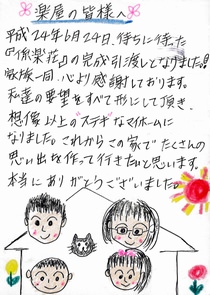 楽屋の皆様へ
平成24年6月24日、待ちに待った
『係楽荘』の完成引渡しとなりました!!
家族一同、心より感謝しております。
私達の要望をすべて形にして頂き、
想像以上の"ステキ"なマイホームに
なりました。これからこの家でたくさんの
思い出を作って行きたいと思います。
本当にありがとうございました。